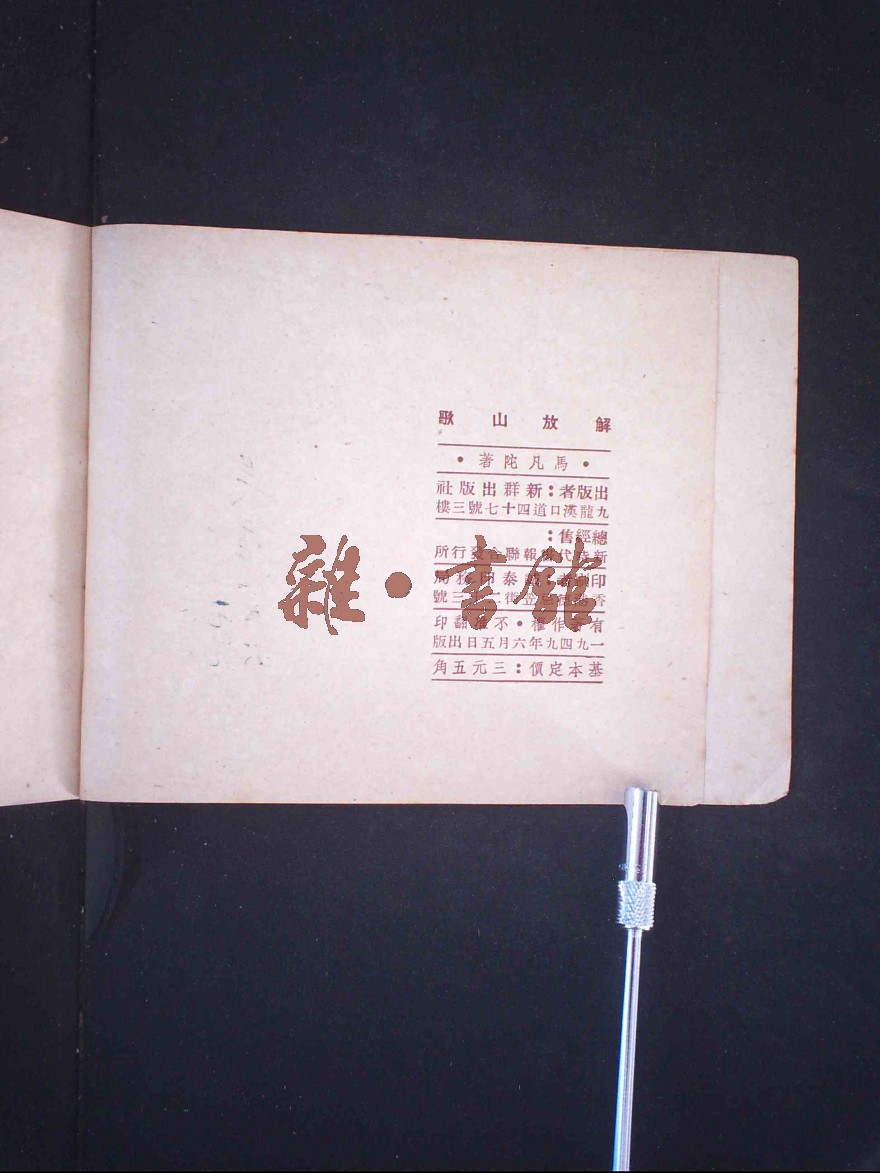 解放山歌
•馬凡陀著•
出版者：新群出版社
九龍漢口道四十七號三樓
總經售：
新時代書報聯合發行所
印刷者：泰印務局
香港
有著作權•不准翻印
一九四九年六月五日出版
基本定價：三元五角
雜•書館